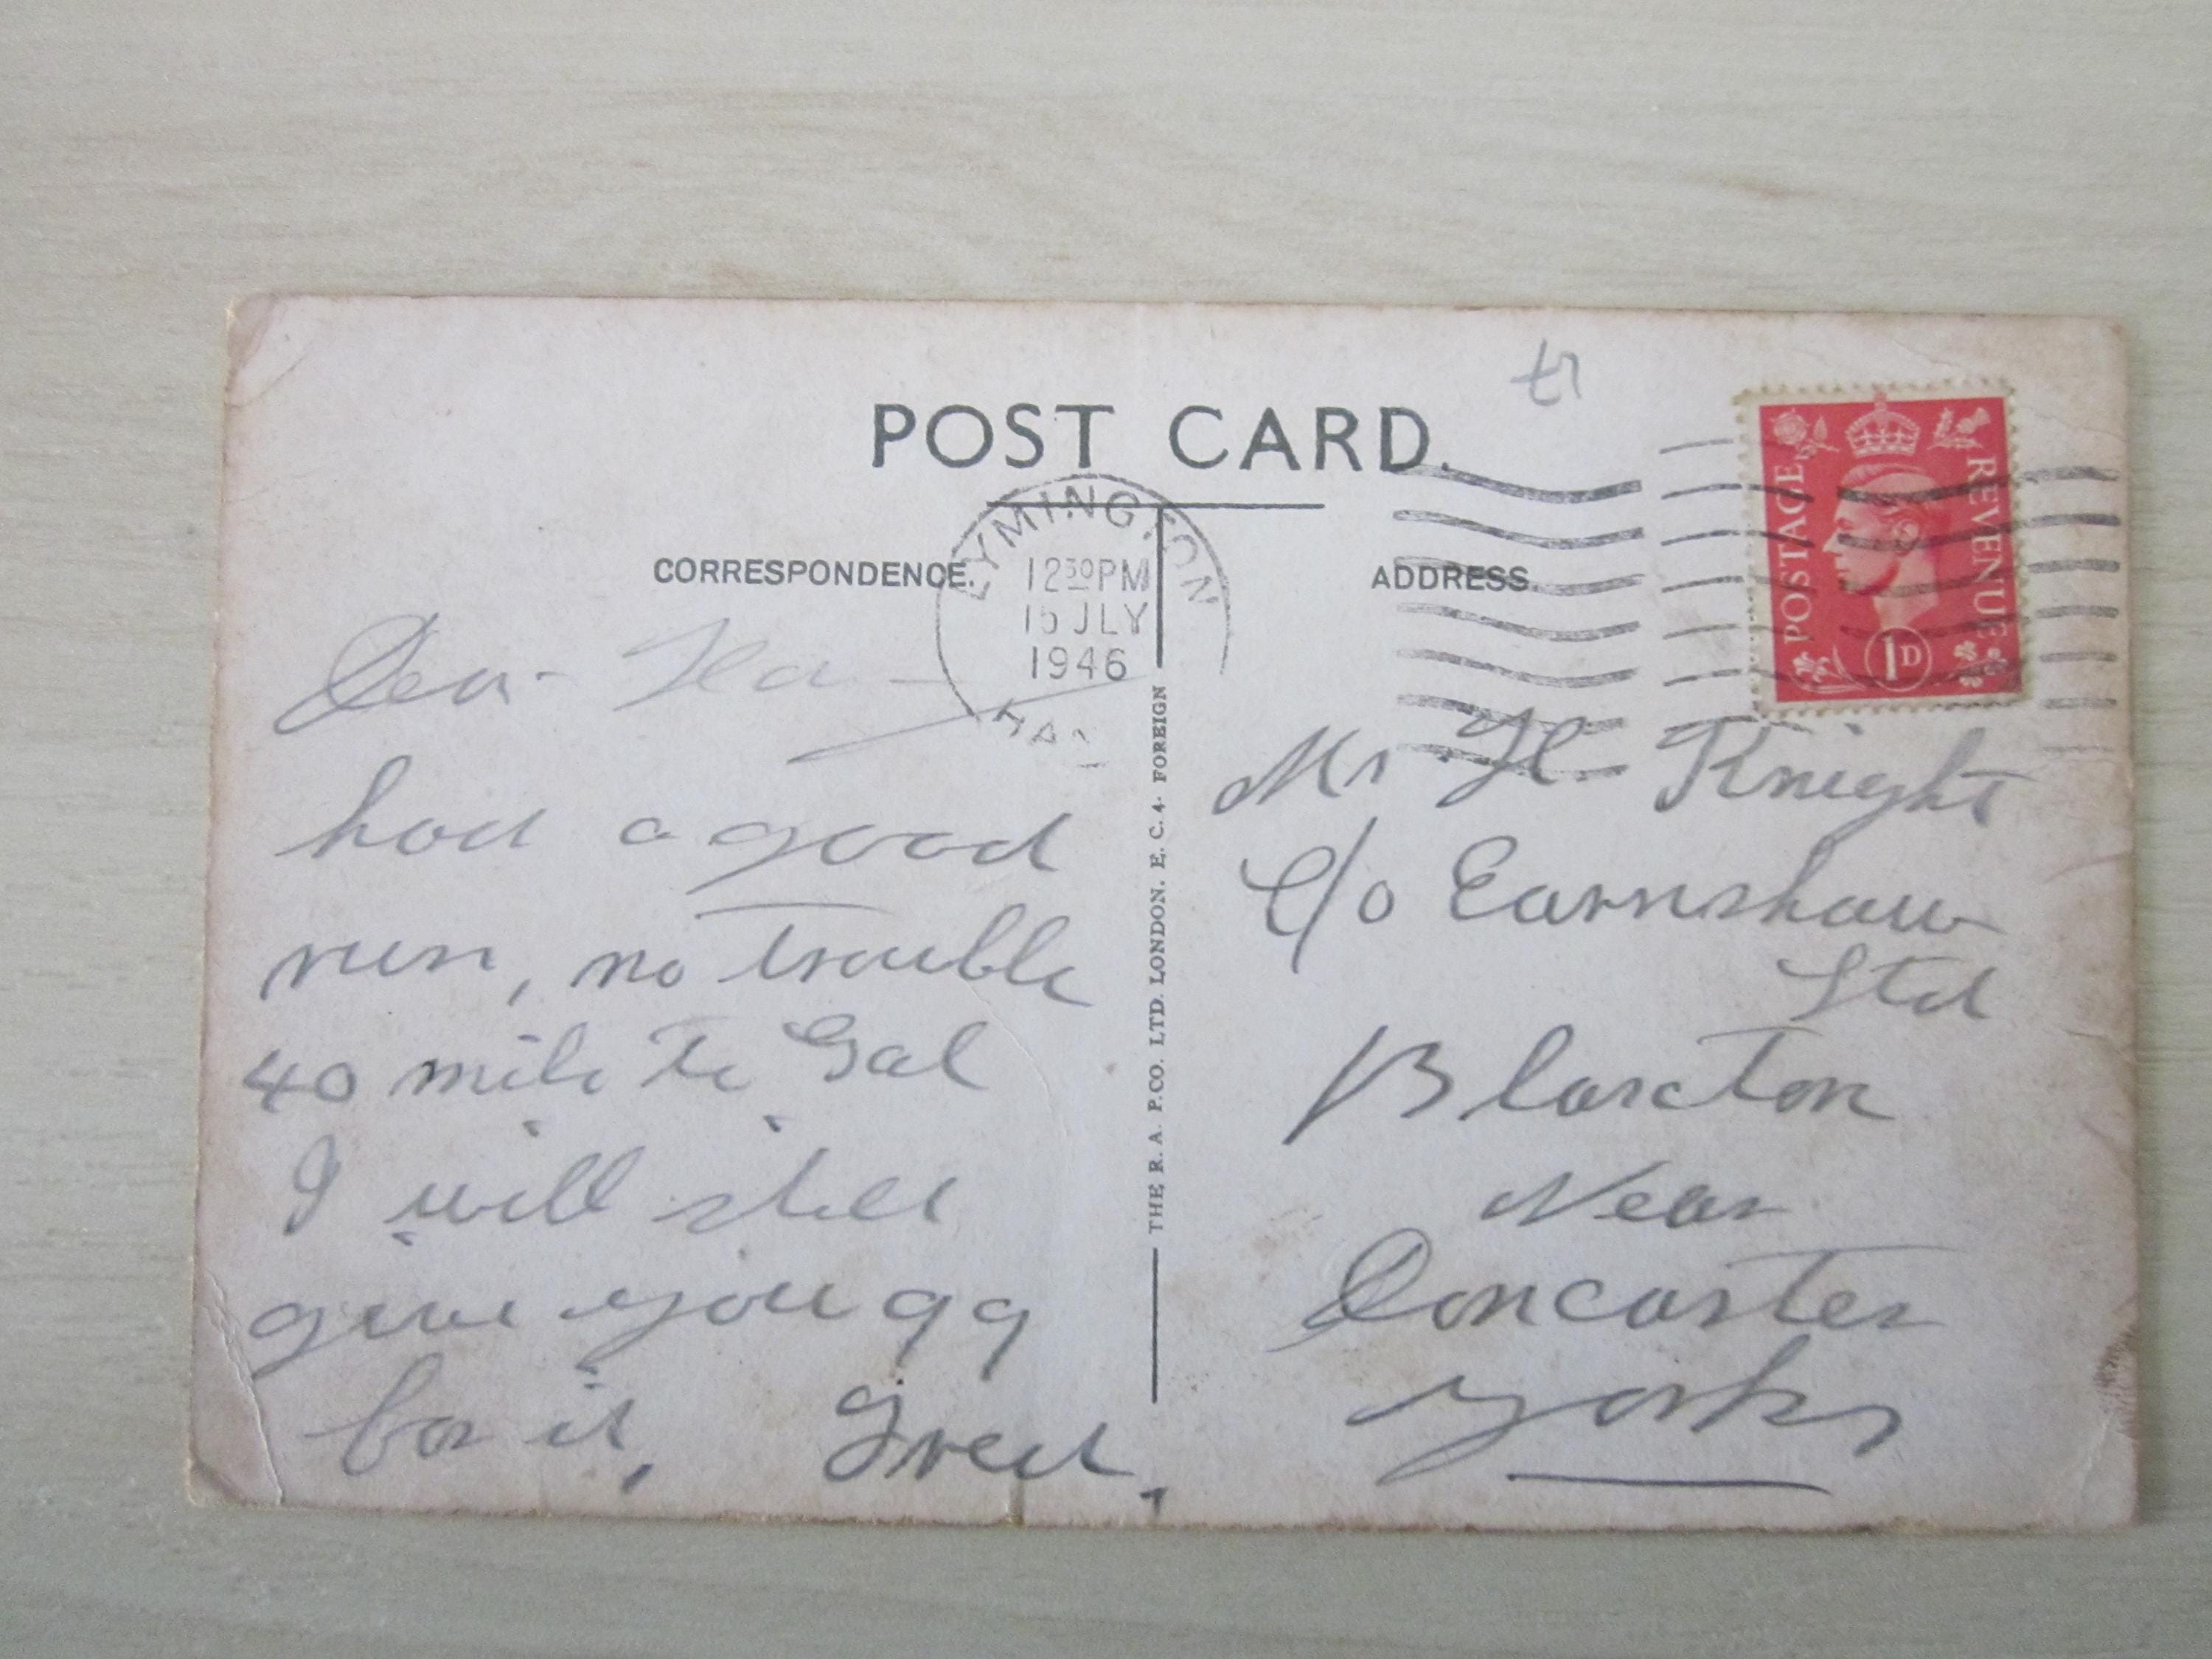 POST CARD.
CORRESPONDENCE.
ADDRESS.
LYMINGTON
12 30 PM
15 JLY
1946
POSTAGE REVENUE
1D
Dear
had a good
run, no trouble
40 mile to Gal
I will still
give you 99
for it, Fred.
Mr H. Knight
C/o Earnshaw
Ltd
Blaxton
Near
Doncaster
Yorks
THE R. A. P. CO. LTD. LONDON. E. C. 4. FOREIGN